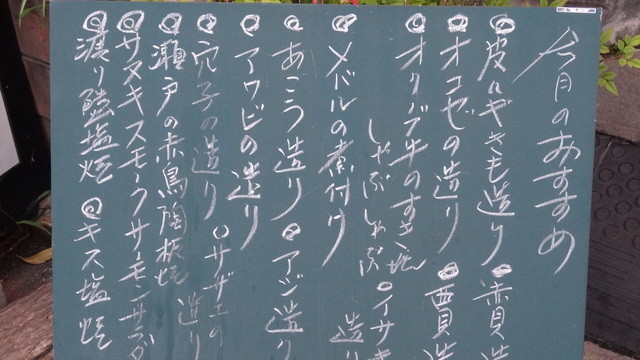 今月のおすすめ
◎皮ハギきも造り ◎赤貝造
◎オコゼの造り ◎貝造
◎オリーブ牛のすき焼
しゃぶしゃぶ ◎イサキ
造り
◎メバルの煮付け
◎あこう造り ◎アジ造り
◎アワビの造り
◎穴子の造り ◎サザエの
造り
◎瀬戸の赤鳥陶板焼
◎サヌキスモークサーモンサラダ
◎渡り蟹塩焼 ◎キス塩焼